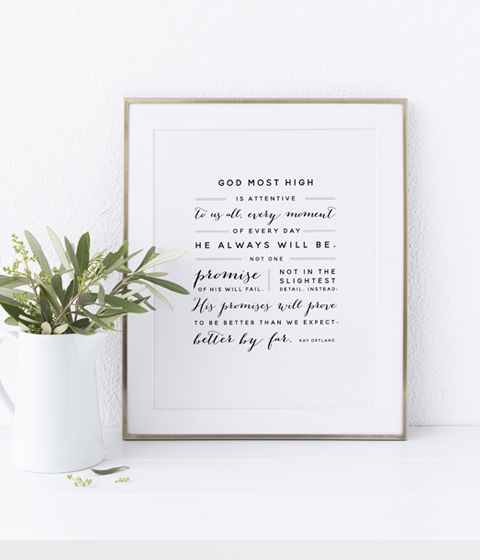 GOD MOST HIGH
IS ATTENTIVE
to us all, every moment
OF EVERY DAY
HE ALWAYS WILL BE.
NOT ONE
promise
OF HIS WILL FAIL.
NOT IN THE
SLIGHTEST
DETAIL. INSTEAD,
His promises will prove
TO BE BETTER THAN WE EXPECT,
better by far. RAY ORTLAND